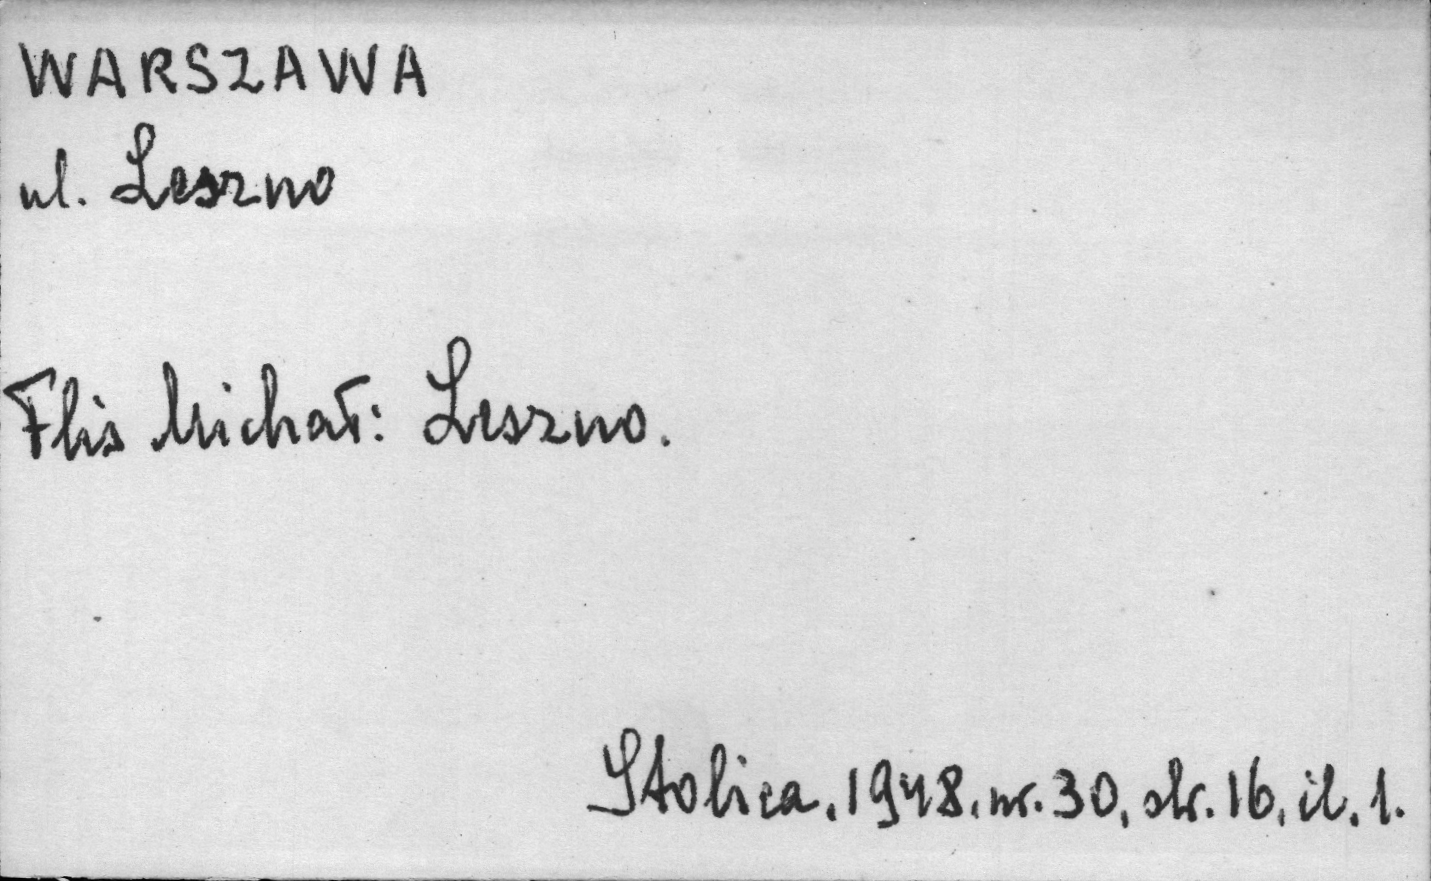 WARSZAWA
ul. Leszno
Flis Michał: Leszno.
Stolica, 1948, nr. 30, str. 16, il. 1.